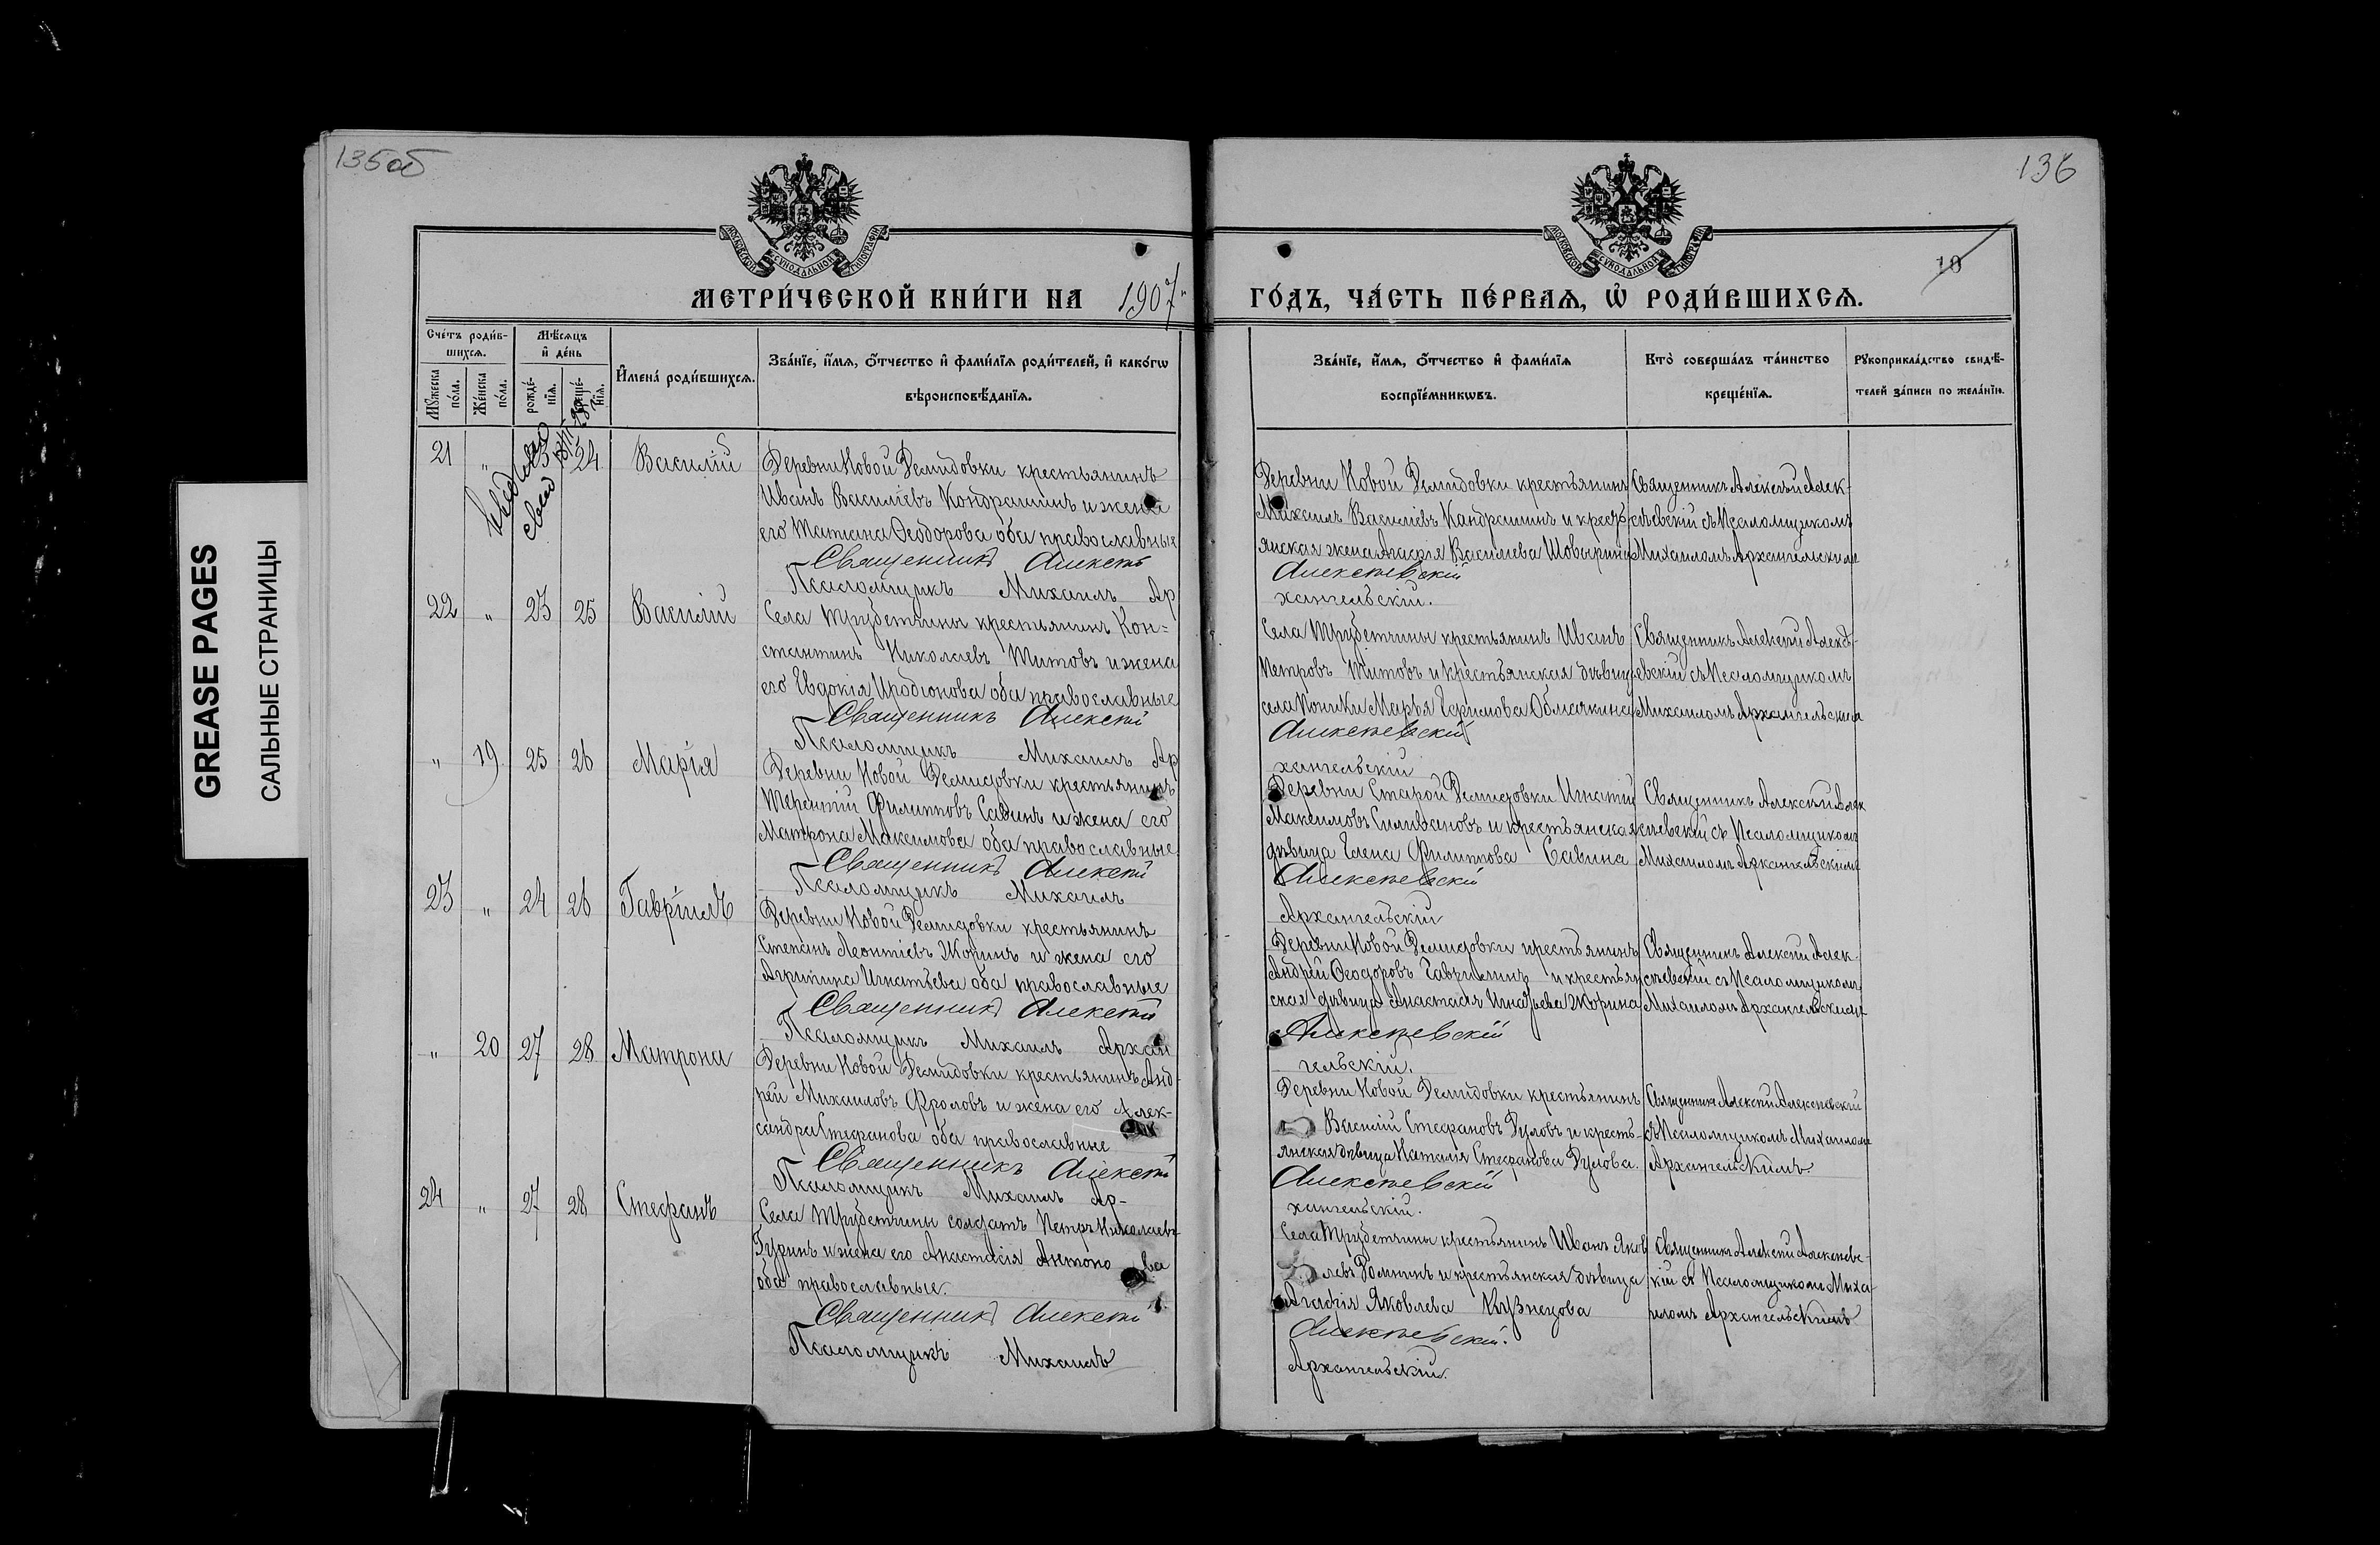 135об
136
МОСКОВСКОЙ СѴНОДАЛЬНОЙ ТИПОГРАФІИ
МОСКОВСКОЙ СѴНОДАЛЬНОЙ ТИПОГРАФІИ
10
МЕТРИ́ЧЕСКОЙ КНИ́ГИ НА 1907 ГО́ДЪ, ЧА́СТЬ ПЕ́РВАѦ, Ѡ҆ РОДИ́ВШИХСѦ.
GREASE PAGES
САЛЬНЫЕ СТРАНИЦЫ
Сче́тъ роди́в-
шихсѧ.
Мꙋжеска по́ла.
Же́нска по́ла.
Мѣ́сѧцъ
и҆ де́нь
рожде́-нїѧ.
креще́-нїѧ.
И҆мена̀ роди́вшихсѧ.
Зва́нїе, и҆́мѧ, ѻ҆́тчество и҆ фами́лїѧ роди́телей, и҆ како́гѡ
вѣроисповѣ́данїѧ.
Зва́нїе, и҆́мѧ, ѻ҆́тчество и҆ фами́лїѧ
воспрїе́мникѡвъ.
Кто̀ соверша́лъ та́инство
креще́нїѧ.
Рꙋкоприкла́дство свидѣ́-
телей за́писи по жела́нїю.
21 " 23 24 Василій
Деревни Новой Демидовки крестьянинъ
Иванъ Василіевъ Кондрашинъ и жена
его Татіана Ѳеодорова оба православные
Священникъ Алексѣй
Псаломщикъ Михаилъ Ар
Деревни Новой Демидовки крестьянинъ
Михаилъ Василіевъ Кандрашинъ и кресть
янская жена Агафія Василіева
Алексѣевскій
хангельскій.
Священникъ Алексѣй Алек-
сѣевскій съ Псаломщикомъ
Михаиломъ Архангельскимъ
22 " 23 25 Василій
Села Трубетчины крестьянинъ Кон=
стантинъ Николаевъ Титовъ и жена
его Евдокія Иродіонова оба православные
Священникъ Алексѣй
Псаломщикъ Михаилъ Ар
Села Трубетчины крестьянинъ Иванъ
Петровъ Титовъ и крестьянская дѣвица
села Марья Ефимова
Алексѣевскій
хангельскій
Священникъ Алексѣй Алексѣ-
евскій съ Псаломщикомъ
Михаиломъ Архангельскимъ
" 19 25 26 Марія
Деревни Новой Демидовки крестьянинъ
Терентій Филипповъ Савинъ и жена его
Матрона Максимова оба православные
Священникъ Алексѣй
Псаломщикъ Михаилъ
Деревни Старой Демидовки Игнатій
Максимовъ Силивановъ и крестьянская
дѣвица Елена Филиппова Савина
Алексѣевскій
Архангельскій
Священникъ Алексѣй Алек
сѣевскій съ Псаломщикомъ
Михаиломъ Архангельскимъ
23 " 24 26 Гавріилъ
Деревни Новой Демидовки крестьянинъ
Степанъ Леонтіевъ Жоринъ и жена его
Агрипина Игнатьева оба православные
Священникъ Алексѣй
Псаломщикъ Михаилъ Архан
Деревни Новой Демидовки крестьянинъ
Андрей Ѳеодоровъ Гаврилинъ и крестьян
ская дѣвица Анастасія Игнатьева Жорина
Алексѣевскій
гельскій.
Священникъ Алексѣй Алек-
сѣевскій съ Псаломщикомъ
Михаиломъ Архангельскимъ
" 20 27 28 Матрона
Деревни Новой Демидовки крестьянинъ Анд-
рей Михаиловъ Фроловъ и жена его Алек-
сандра Стефанова оба православные
Священникъ Алексѣй
Псаломщикъ Михаилъ Ар-
Деревни Новой Демидовки крестьянинъ
Василій Стефановъ Гуловъ и кресть-
янская дѣвица Наталія Стефанова Гулова.
Алексѣевскій
хангельскій.
Священникъ Алексѣй Алексѣевскій
съ Псаломщикомъ Михаиломъ
Архангельскимъ
24 " 27 28 Стефанъ
Села Трубетчины солдатъ Петръ Николаевъ
Гуринъ и жена его Анастасія Антонова
оба православные.
Священникъ Алексѣй
Псаломщикъ Михаилъ
Села Трубетчины крестьянинъ Иванъ Яков
левъ и крестьянская дѣвица
Агафія Яковлева Кузнецова
Алексѣевскій.
Архангельскій.
Священникъ Алексѣй Алексѣевс-
кій съ Псаломщикомъ Миха-
иломъ Архангельскимъ